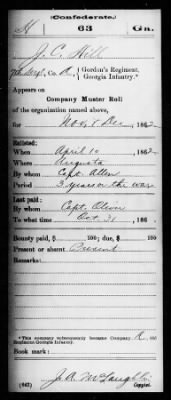 (Confederate.)
H 63 Ga.
J. C. Hill
Co. Gordon's Regiment, Georgia Infantry.*
Appears on
Company Muster Roll
of the organization named above,
for Nov. & Dec, 1862.
Enlisted:
When April 10, 1862.
Where Augusta
By whom Capt. Allen
Period 3 years or the war
Last paid:
By whom Capt. Olivin
To what time Oct. 31, 186 .
Bounty paid, $ 100; due, $ 100
Present or absent Present
Remarks:
*This company subsequently became Company 63
Regiment Georgia Infantry.
Book mark:
J. A. McLaughlin
(642) Copyist.